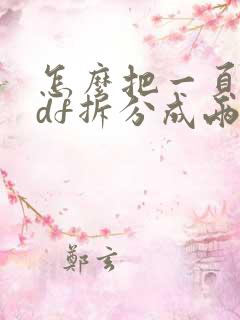 怎麼把一頁
df拆分成兩
鄭玄